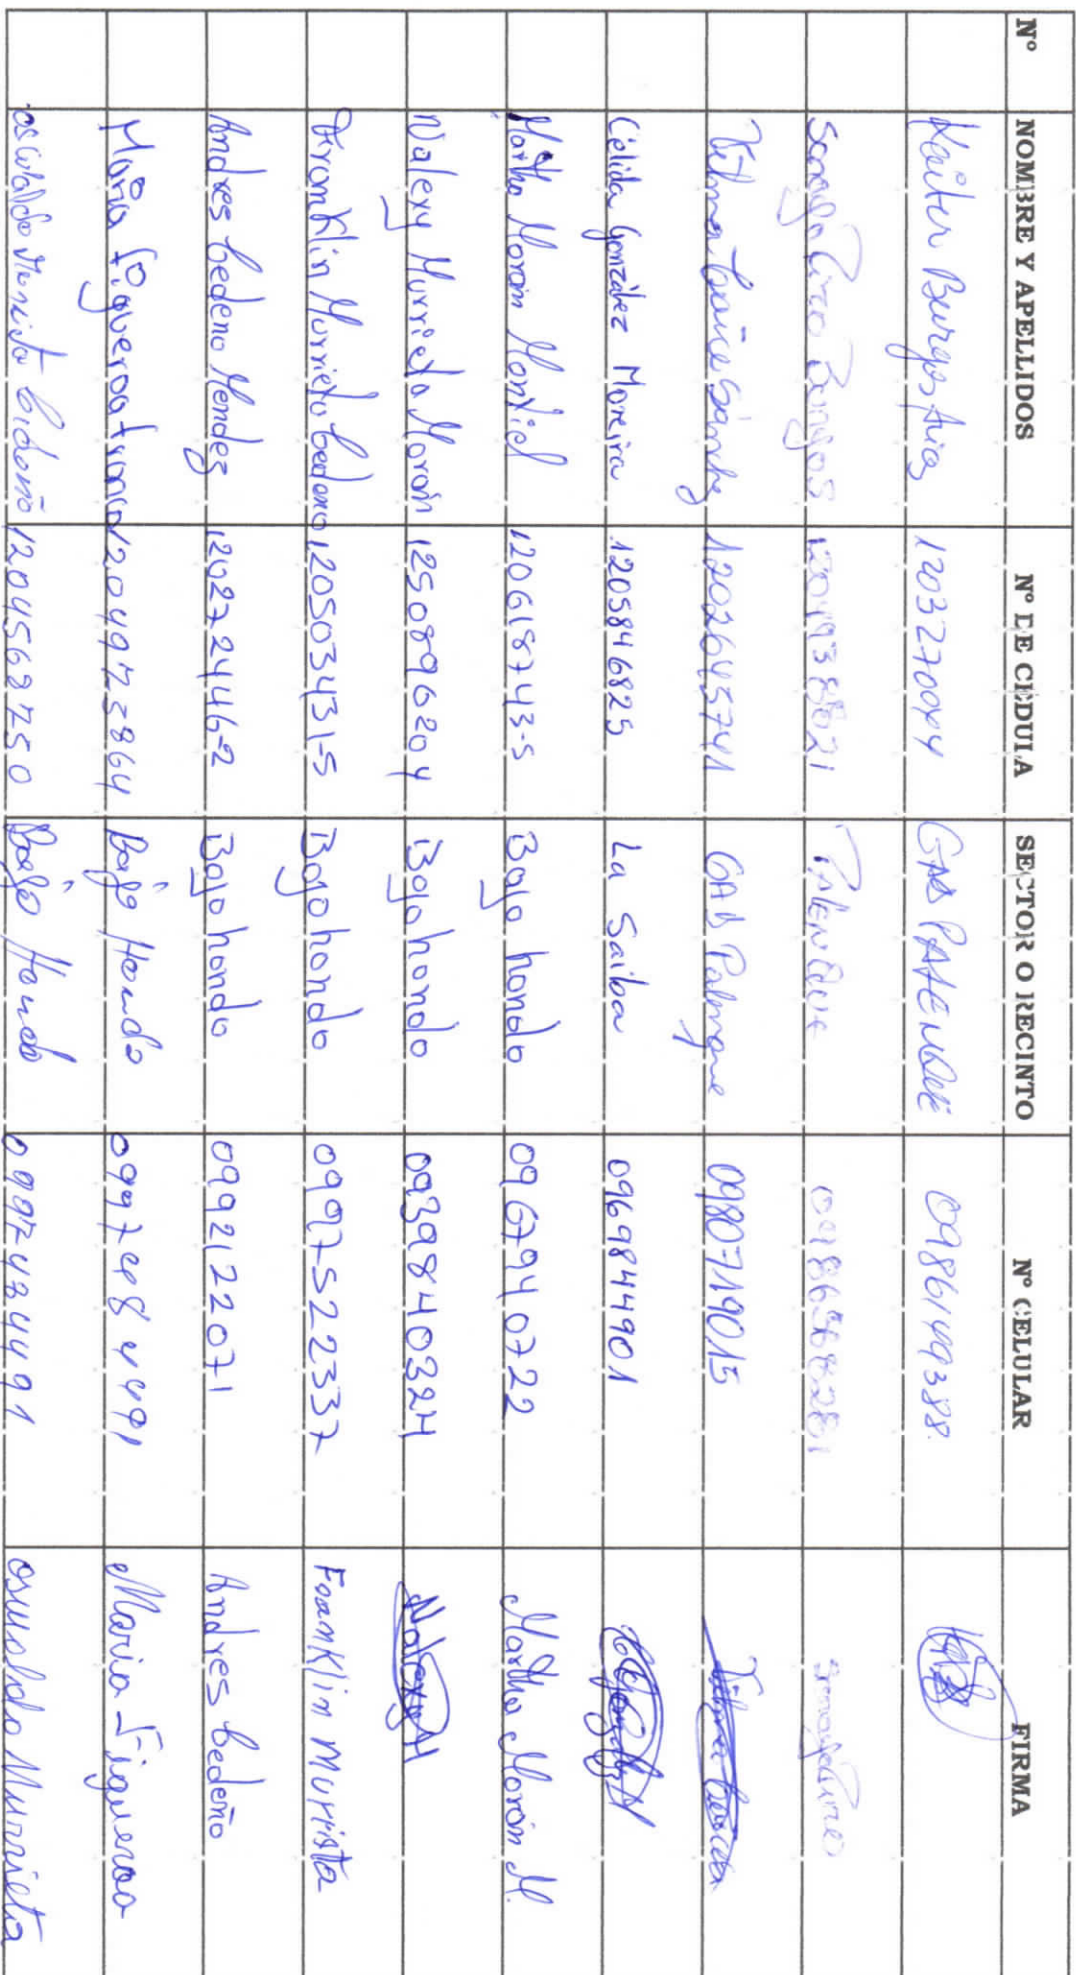 N° NOMBRE Y APELLIDOS N° DE CEDULA SECTOR O RECINTO N° CELULAR FIRMA
Burgos Arias GAD PALENQUE 0986149388
PALENQUE
Sánchez 1202645741 GAD Palenque 0980719015
Célida González Moreira 1205846825 La Saiba 0969844901
Martha Moran Montiel 120618743-5 Bajo hondo 0967940722 Martha Morán M.
Valery Murrieta Morán 1250896204 Bajo hondo 0939840324
Franklin Murrieta Cedeno 120503431-5 Bajo hondo 0997522337 Franklin Murrieta
Andres Cedeno Mendez 120272446-2 Bajo hondo 0992122071 Andres Cedeño
Maria Figueroa Franco 1204973864 Bajo Hondo 0997484491 Maria Figueroa
1204568750 Bajo Hondo 0997484491 Oswaldo Murrieta